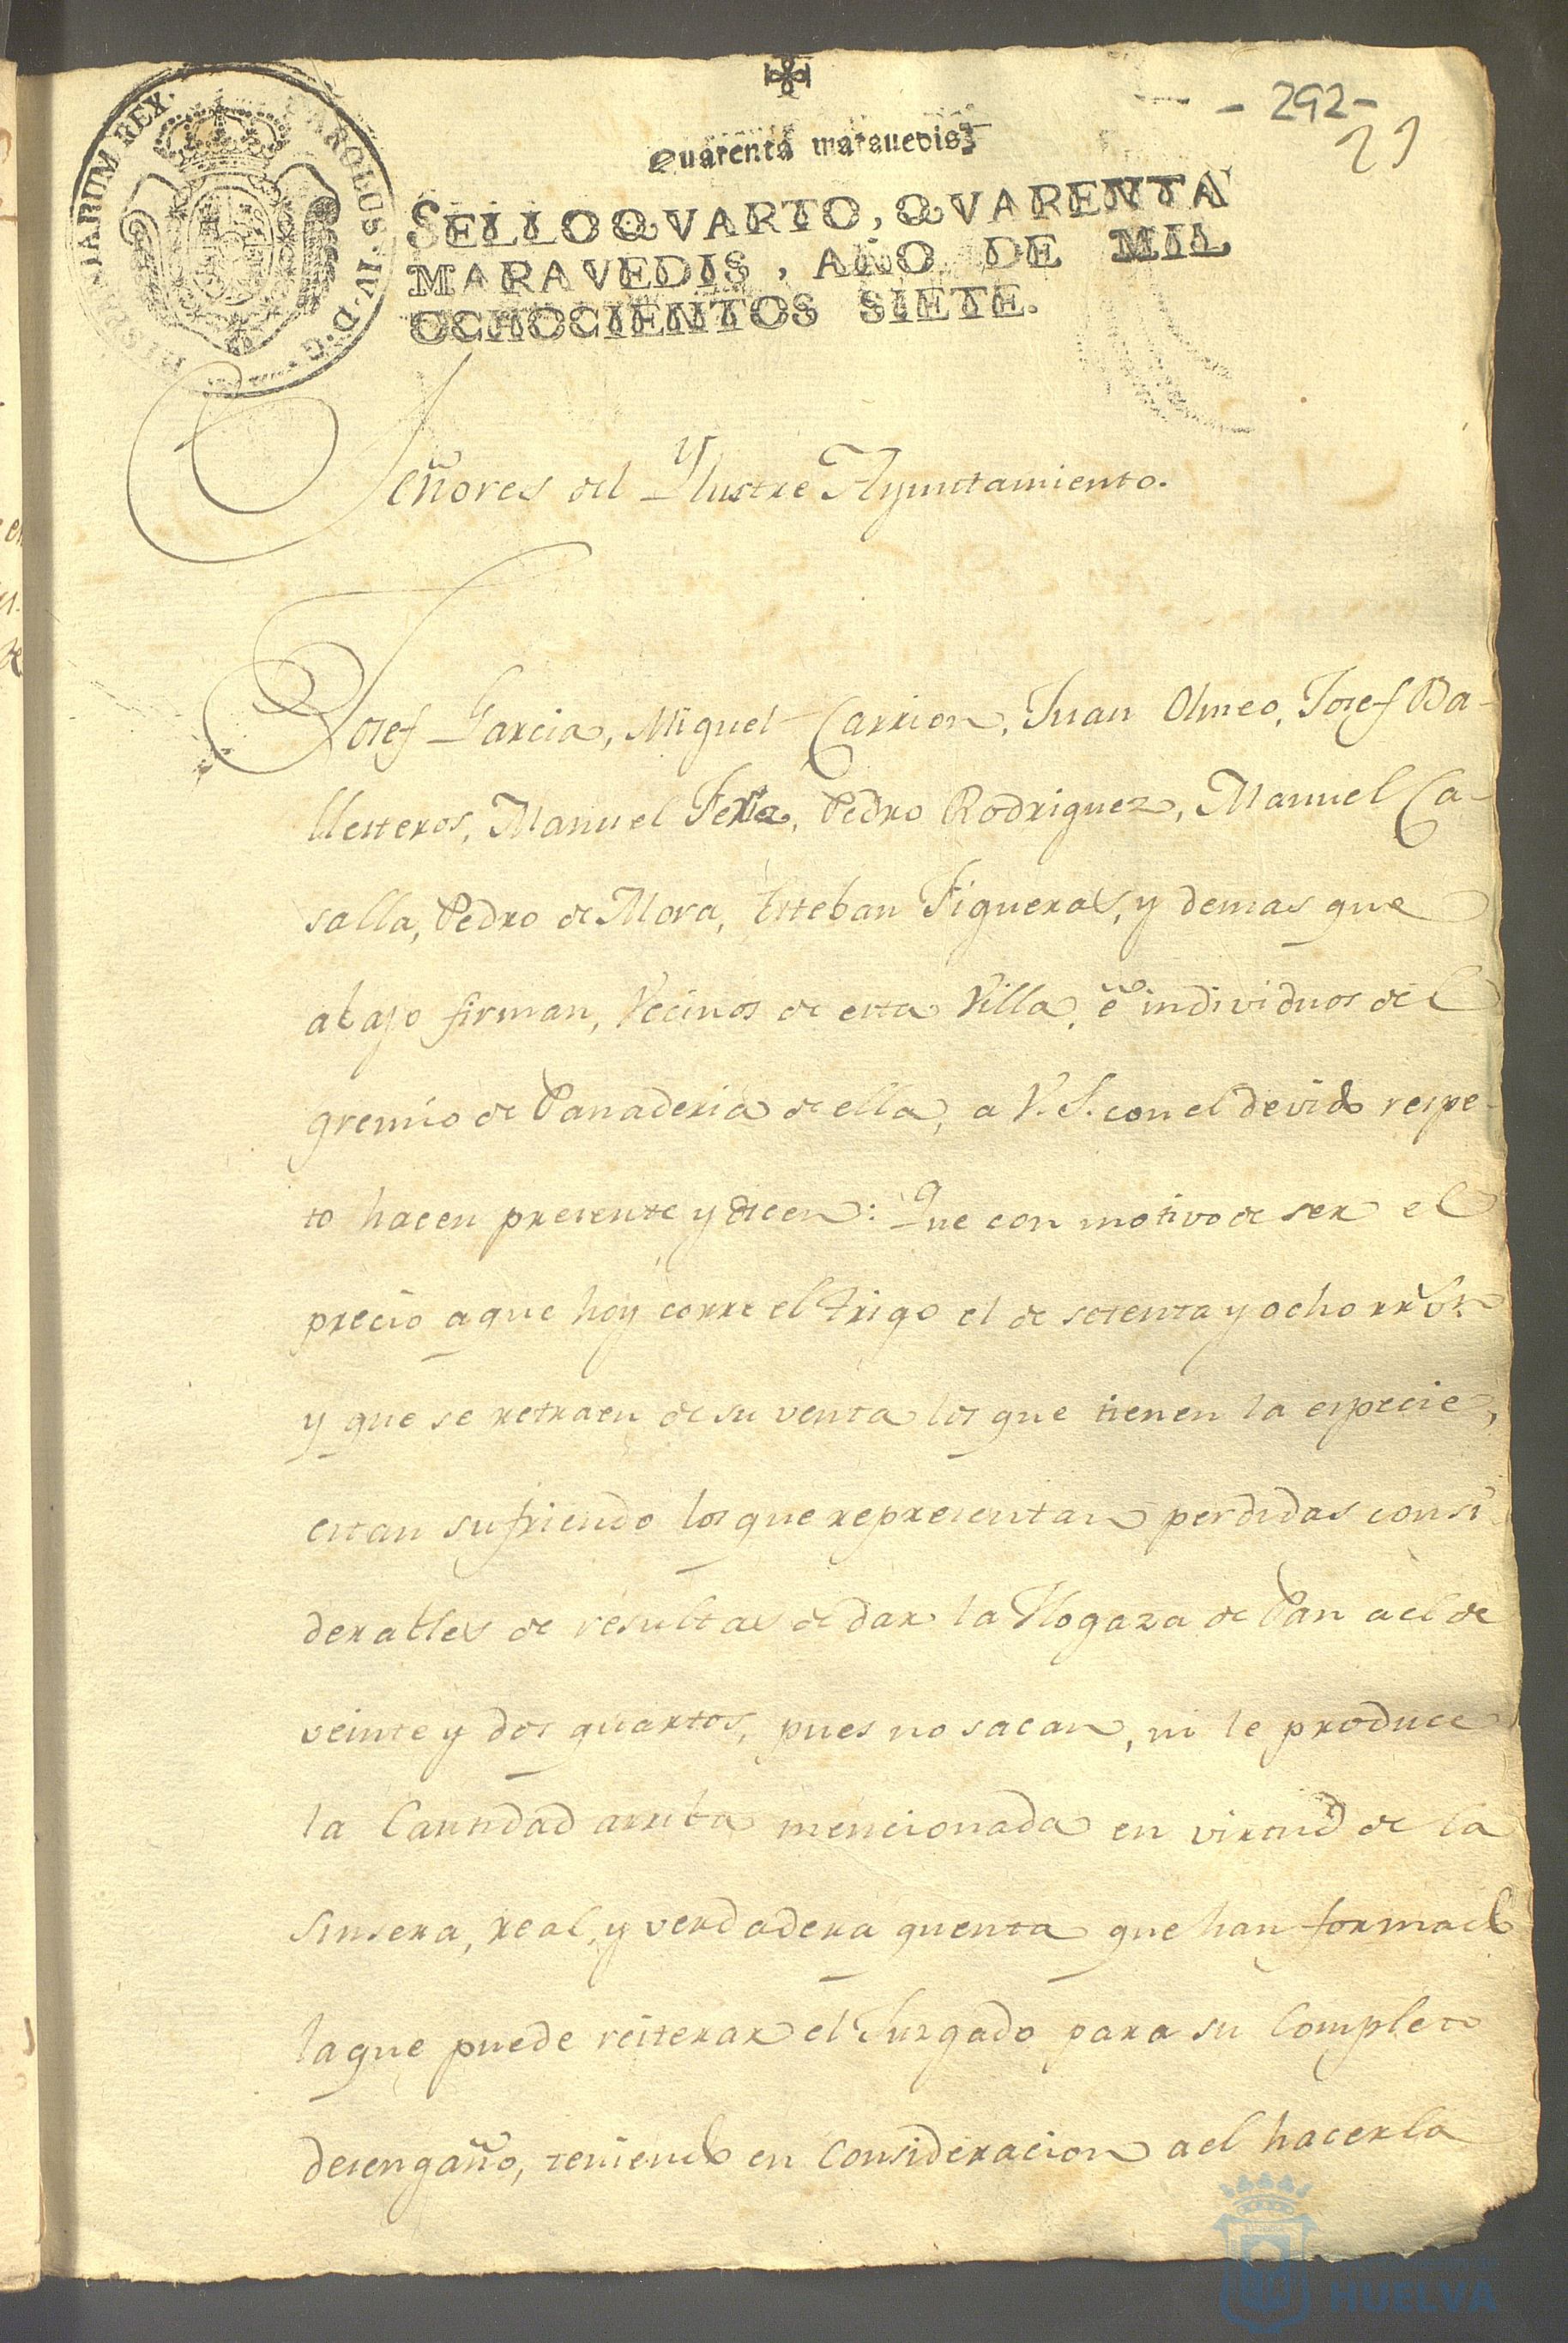 - 292-
29
Quarenta maravedis
SELLO QVARTO, QVARENTA
MARAVEDIS, AÑO DE MIL
OCHOCIENTOS SIETE.
CAROLUS·IV·D·G· HISPANIARUM REX·
Señores del Ylustre Ayuntamiento.
Josef Garcia, Miguel Carrion, Juan Olmeo, Josef Ba-
llesteros, Manuel Pedro Rodriguez, Manuel Ca-
salla, Pedro de Mora, Esteban Figueras, y demas que
abajo firman, Vecinos de esta Villa, e individuos del
gremio de Panaderia de ella, a V. S. con el devido respe-
to hacen presente y dicen: Que con motivo de ser el
precio aque hoy corre el trigo el de setenta y ocho rr.ˢ v.ⁿ
y que se retraen de su venta los que tienen la especie,
estan sufriendo los que representan perdidas consi
derables de resultas de dar la Hogaza de Pan a el de
veinte y dos quartos, pues no sacan, ni le produce
la Cantidad arriba mencionada en virtud de la
sinsera, real, y verdadera quenta que han formado
la que puede reiterar el Juzgado para su Completo
desengaño, teniendo en Consideracion a el hacerla
HUELVA